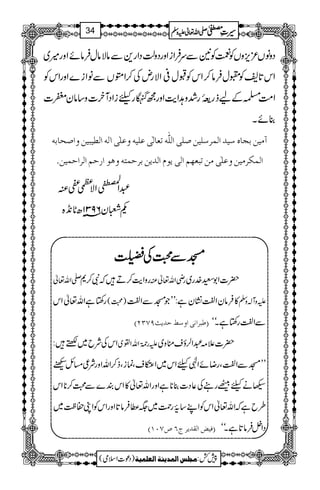 سیرتِ مصطفیٰ صلی اللہ تعالیٰ علیہ وسلم
34
دونوں عزیزوں کو نعمتِ کونین سے سرفراز اور دولتِ دارین سے مالا مال فرمائے اور میری
اس تالیف کو مقبول فرما کر اس کو قبول فی الارض کی کرامتوں سے نوازے اور اس کو
امت مسلمہ کے لیے ذریعۂ رشد وہدایت اور مجھ گناہگار کیلئے زادِ آخرت وسامانِ مغفرت
بنائے۔
آمین بجاہ سید المرسلین صلی اللّٰہ تعالٰی علیہ وعلی الہ الطیبین واصحابہ
المکرمین وعلٰی من تبعھم الی یوم الدین برحمتہ وھو ارحم الراحمین.
عبدالمصطفیٰ الاعظمی عفی عنہ
یکم شعبان ۱۳۹۶ھ ٹانڈہ
مسجد سے محبت کی فضیلت
حضرت ابو سعید خدری رضی اللہ تعالیٰ عنہ روایت کرتے ہیں کہ نبی کریم صلی اللہ تعالیٰ
علیہ والہ وسلم کا فرمان الفت نشان ہے: ’’جو مسجد سے الفت (محبت) رکھتا ہے اللہ تعالیٰ اس
سے الفت رکھتا ہے۔‘‘ (طبرانی اوسط حدیث ۲۳۷۹)
حضرت علامہ عبدالرؤف مناوی علیہ رحمۃ اللہ القوی اس کی شرح میں لکھتے ہیں:
’’مسجد سے الفت، رضائے الٰہی کیلئے اس میں اعتکاف، نماز، ذکراللہ اور شرعی مسائل سیکھنے
سکھانے کیلئے بیٹھے رہنے کی عادت بنانا ہے اور اللہ تعالیٰ کا اس بندے سے محبت کرنا اس
طرح ہے کہ اللہ تعالیٰ اس کو اپنے سایۂ رحمت میں جگہ عطا فرماتا اور اس کو اپنی حفاظت میں
داخل فرماتا ہے۔‘‘ (فیض القدیر ج ۶ ص ۱۰۷)
پیش کش: مجلس المدینۃ العلمیۃ (دعوتِ اسلامی)